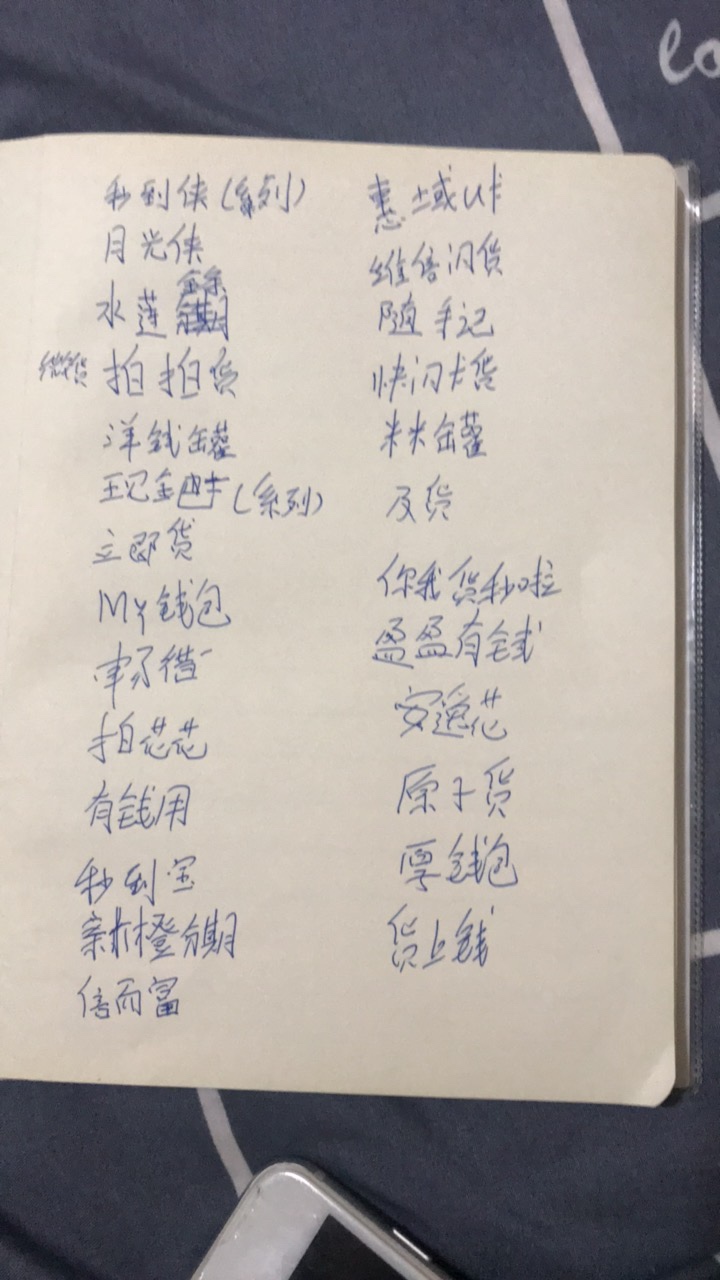 秒到侠(系列)
月光侠
水莲金条
分期
微货 拍拍货
洋钱罐
现金
(系列)
立即货
My钱包
拍芯芯
有钱用
秒到宝
新橙分期
信而富
惠域U卡
维信闪货
随手记
快闪卡货
米米罐
及货
你我货秒啦
盈盈有钱
安逸花
原子货
厚钱包
货上钱
lo